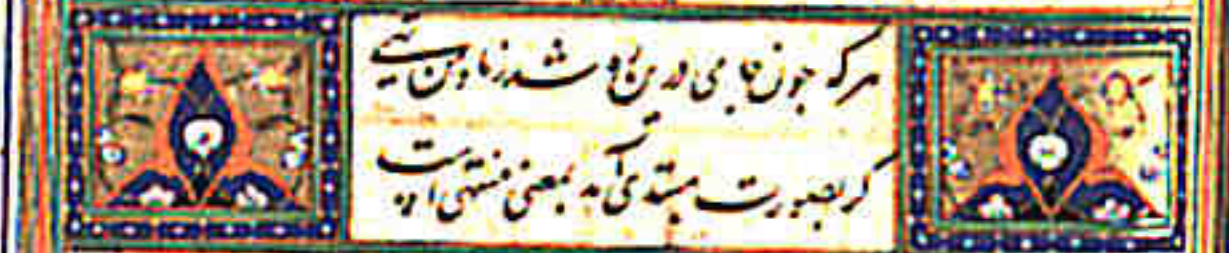 هرکه چون جامی درین ره شد ز ما و من تهی
گر بصورت مبتدی آمد بمعنی منتهی است